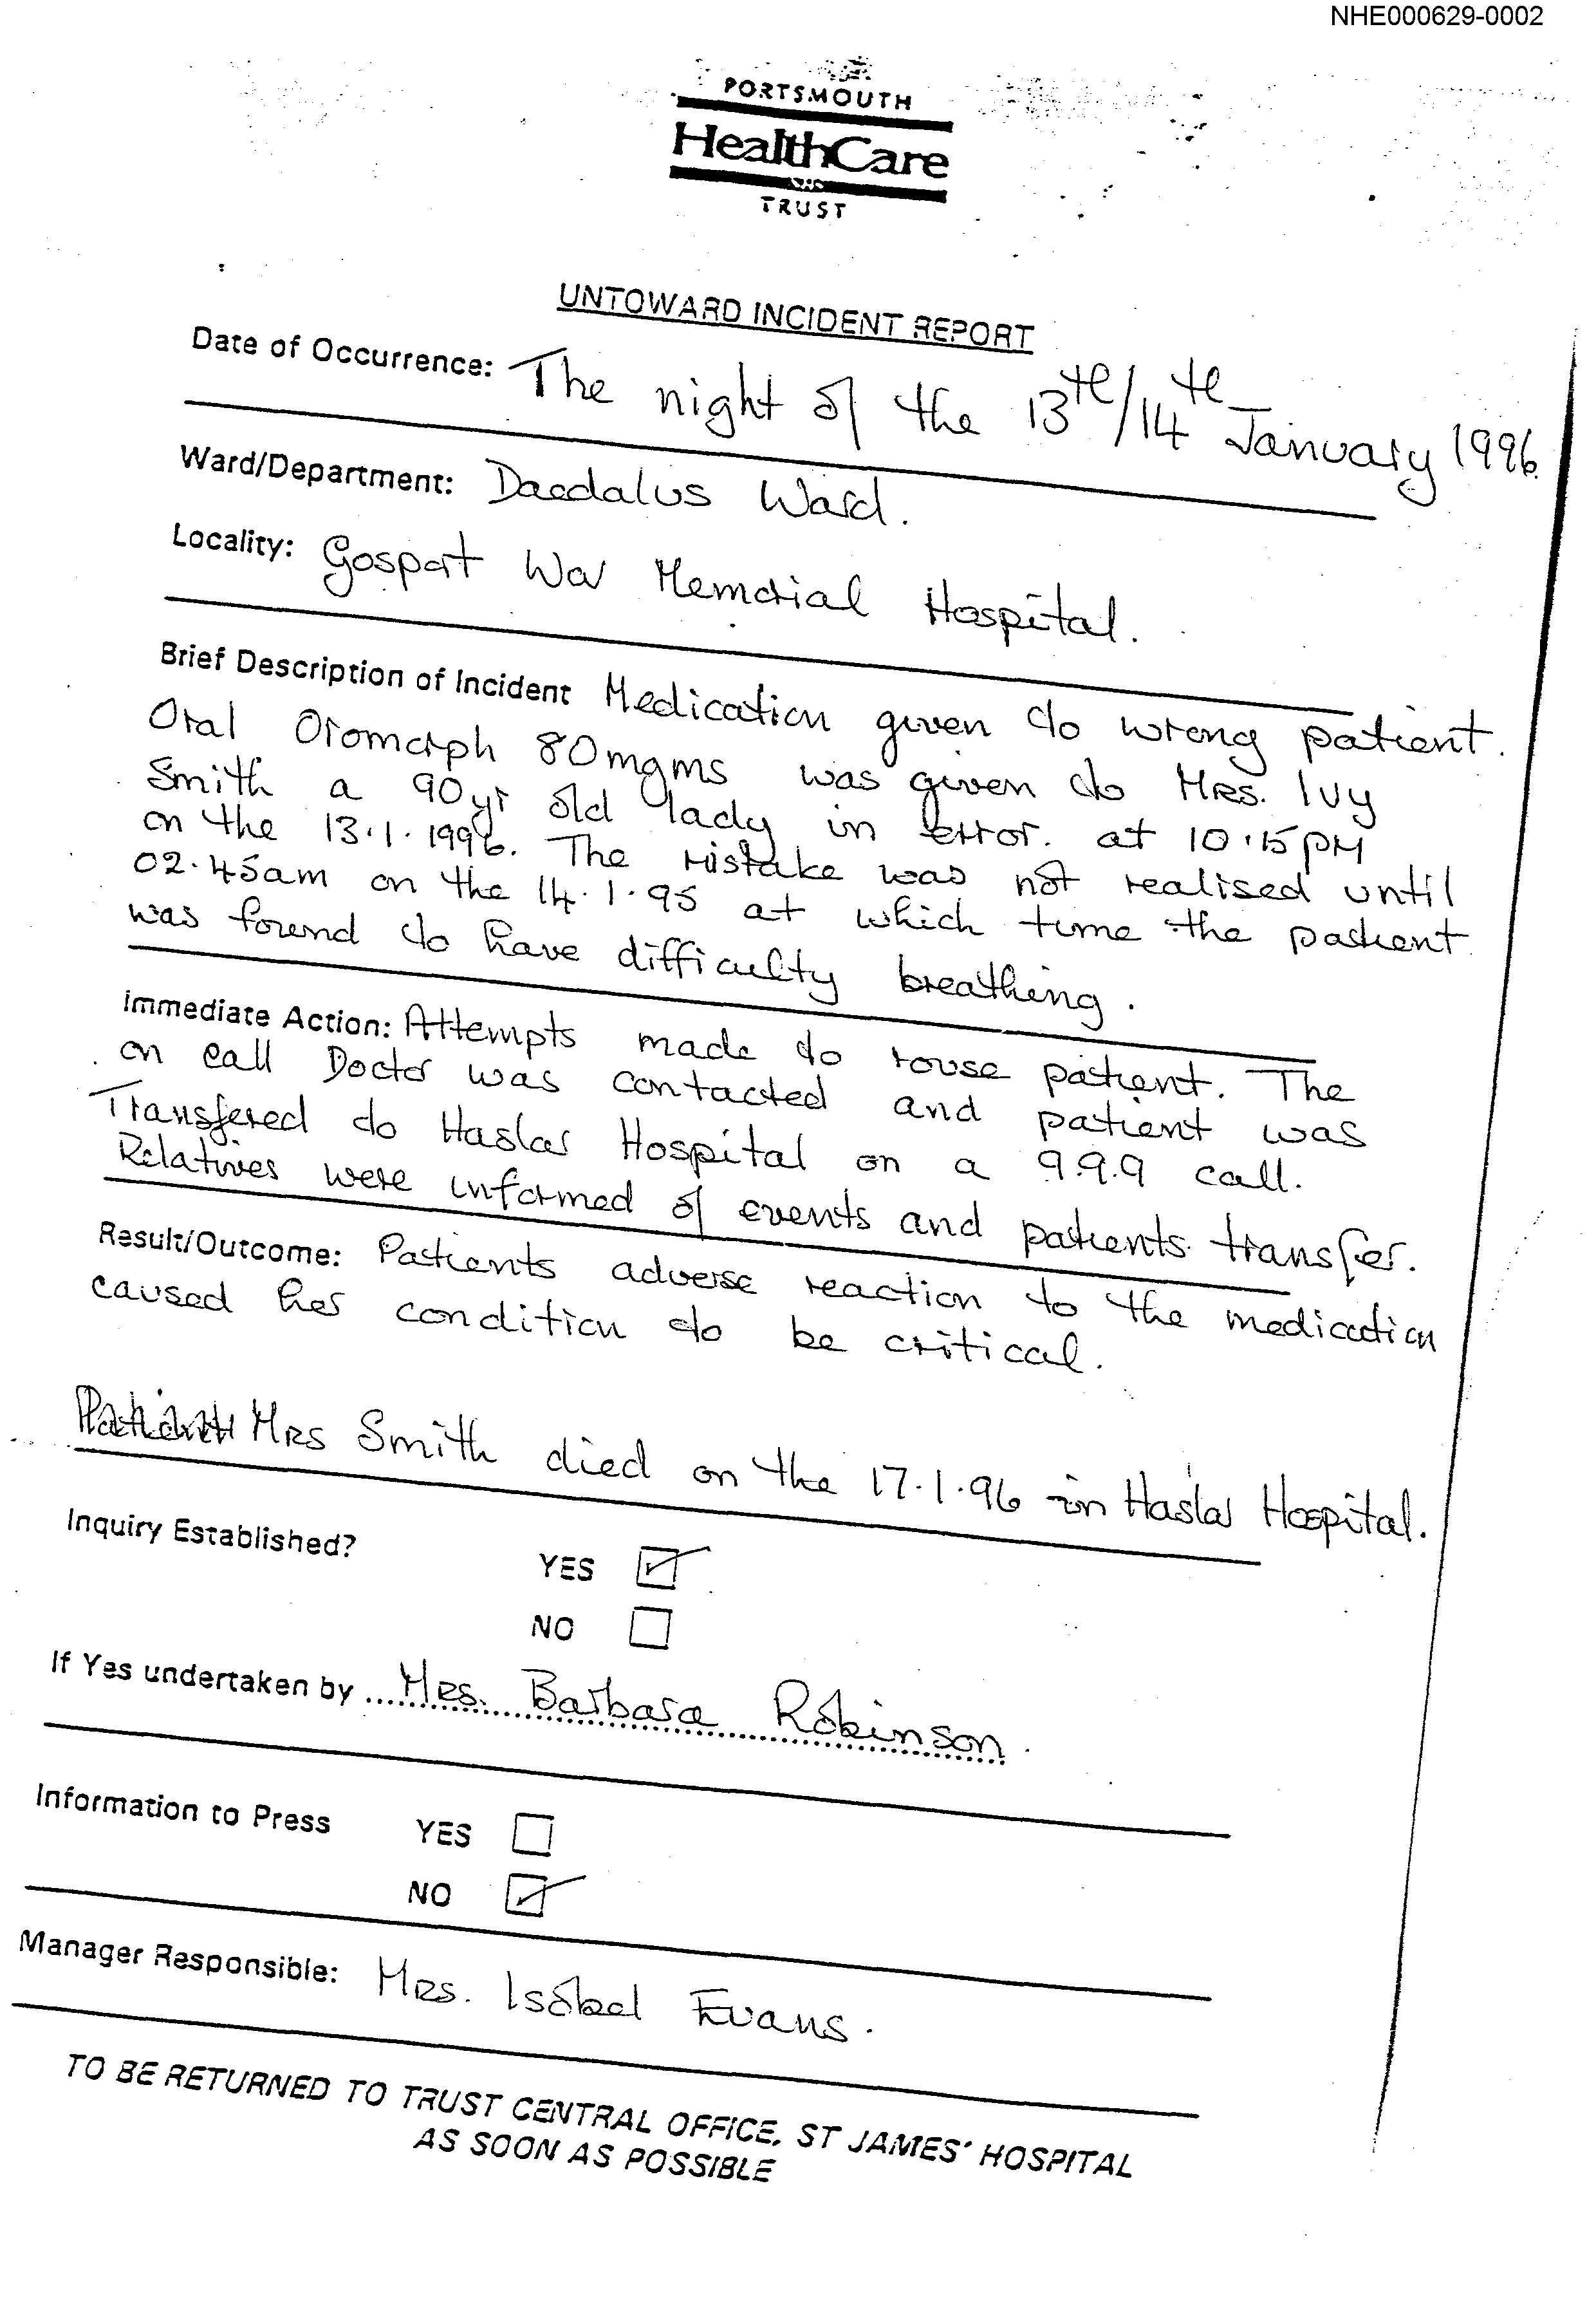 NHE000629-0002
PORTSMOUTH
HealthCare
NHS
TRUST
UNTOWARD INCIDENT REPORT
Date of Occurrence: The night of the 13th/14th January 1996.
Ward/Department: Daedalus Ward.
Locality: Gosport War Memorial Hospital.
Brief Description of Incident Medication given to wrong patient.
Oral Oromorph 80mgms was given to Mrs. Ivy
Smith a 90yr old lady in error. at 10.15pm
on the 13.1.1996. The mistake was not realised until
02.45am on the 14.1.95 at which time the patient
was found to have difficulty breathing.
Immediate Action: Attempts made to rouse patient. The
on call Doctor was contacted and patient was
Transfered to Haslar Hospital on a 9.9.9 call.
Relatives were informed of events and patients transfer.
Result/Outcome: Patients adverse reaction to the medication
caused her condition to be critical.
Mrs Smith died on the 17.1.96 in Haslar Hospital.
Inquiry Established?
YES
NO
If Yes undertaken by Mrs. Barbara Robinson.
Information to Press YES
NO
Manager Responsible: Mrs. Isobel Evans.
TO BE RETURNED TO TRUST CENTRAL OFFICE, ST JAMES' HOSPITAL
AS SOON AS POSSIBLE